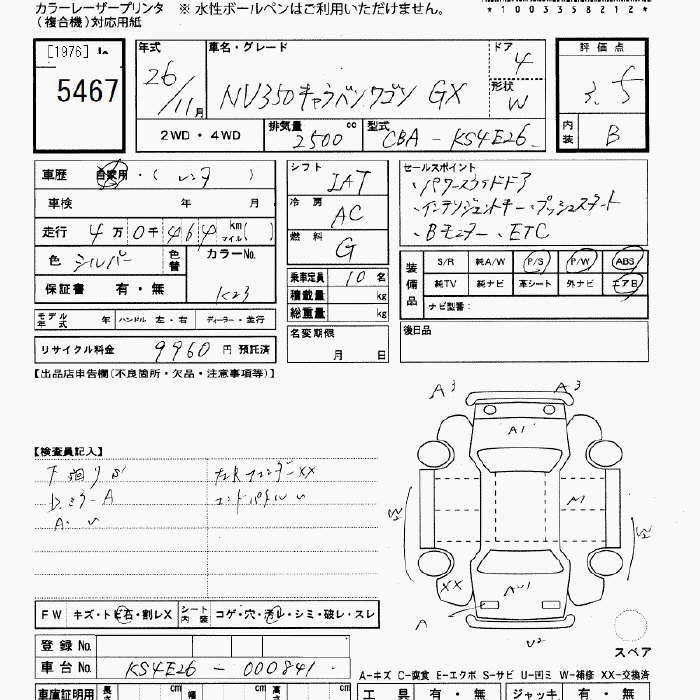 カラーレーザープリンタ ※ 水性ボールペンはご利用いただけません。
(複合機)対応用紙
*1003358212*
[1976] 1a
5467
年式 26/11月
車名・グレード
NV350キャラバンワゴン GX
ドア 4
形状 W
2WD・4WD
排気量 2500 cc
型式 CBA-KS4E26
評価点
3.5
内装 B
車歴 自家用・(レンタ)
車検 年 月
走行 4万0千464 km マイル( )
色 シルバー 色替
カラーNo. K23
保証書 有・無
モデル年式 年 ハンドル 左・右 ディーラー・並行
リサイクル料金 9960円 預託済
シフト IAT
冷房 AC
燃料 G
乗車定員 10名
積載量 kg
総重量 kg
名変期限
月 日
セールスポイント
・パワースライドドア
・インテリジェントキー・プッシュスタート
・Bモニター・ETC
装備品
S/R 純A/W P/S P/W ABS
純TV 純ナビ 革シート 外ナビ エアB
ナビ型番:
後日品
【出品店申告欄(不良箇所・欠品・注意事項等)】
【検査員記入】
下廻りS
DミラーA
A・U
左Rフェンダーxx
エンドパネルU
FW キズ・トビ石・割レX シート内装 コゲ・穴・汚レ・シミ・破レ・スレ
登録No.
車台No. KS4E26-000841
A3
A3
A1
W2
A1
W2
XX
AU1
A
U2
スペア
A-キズ C-腐食 E-エクボ S-サビ U-凹ミ W-補修 XX-交換済
車庫証明用 長さ cm 幅 cm 高さ cm
工具 有・無 ジャッキ 有・無